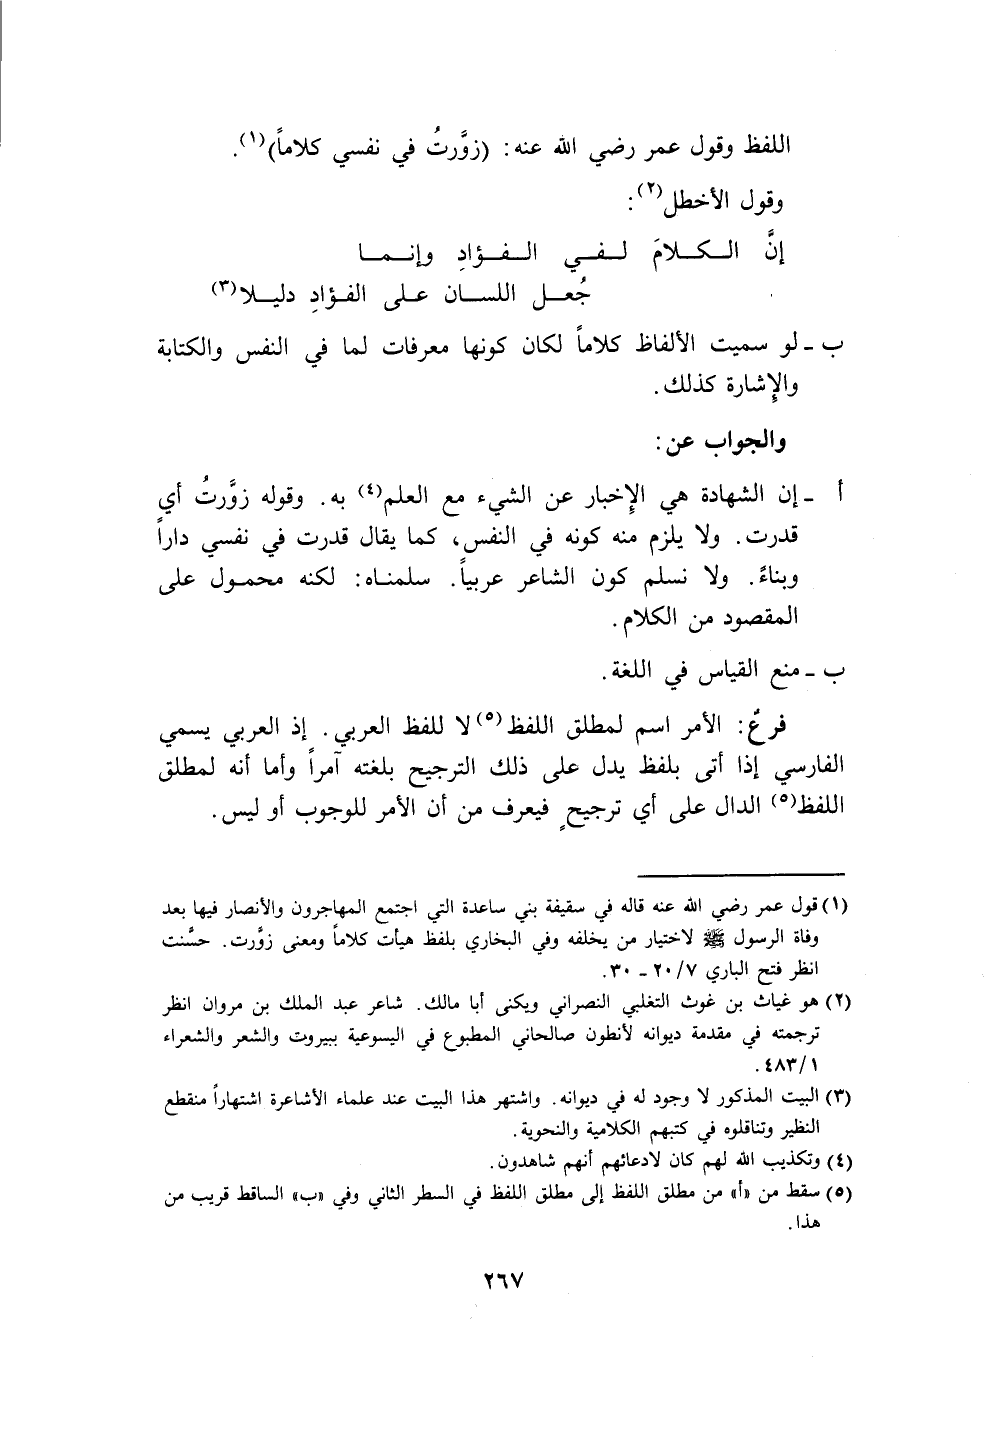 اللفظ وقول عمر رضي الله عنه: (زوَّرتُ في نفسي كلاماً)(١).
وقول الأخطل(٢):
إنَّ الـكـلامَ لـفـي الـفـؤادِ وإنـمـا
جُعـل اللسـان علـى الفـؤادِ دليـلا(٣)
ب ـ لو سميت الألفاظ كلاماً لكان كونها معرفات لما في النفس والكتابة
والإشارة كذلك.
والجواب عن:
أ ـ إن الشهادة هي الإخبار عن الشيء مع العلم(٤) به. وقوله زوَّرتُ أي
قدرت. ولا يلزم منه كونه في النفس، كما يقال قدرت في نفسي داراً
وبناءً. ولا نسلم كون الشاعر عربياً. سلمناه: لكنه محمول على
المقصود من الكلام.
ب ـ منع القياس في اللغة.
فرعٌ: الأمر اسم لمطلق اللفظ(٥) لا للفظ العربي. إذ العربي يسمي
الفارسي إذا أتى بلفظ يدل على ذلك الترجيح بلغته آمراً وأما أنه لمطلق
اللفظ(٥) الدال على أي ترجيحٍ فيعرف من أن الأمر للوجوب أو ليس.
(١) قول عمر رضي الله عنه قاله في سقيفة بني ساعدة التي اجتمع المهاجرون والأنصار فيها بعد
وفاة الرسول ﷺ لاختيار من يخلفه وفي البخاري بلفظ هيأت كلاماً ومعنى زوَّرت. حسَّنت
انظر فتح الباري ٢٠/٧ ـ ٣٠.
(٢) هو غياث بن غوث التغلبي النصراني ويكنى أبا مالك. شاعر عبد الملك بن مروان انظر
ترجمته في مقدمة ديوانه لأنطون صالحاني المطبوع في اليسوعية ببيروت والشعر والشعراء
٤٨٣/١.
(٣) البيت المذكور لا وجود له في ديوانه. واشتهر هذا البيت عند علماء الأشاعرة اشتهاراً منقطع
النظير وتناقلوه في كتبهم الكلامية والنحوية.
(٤) وتكذيب الله لهم كان لادعائهم أنهم شاهدون.
(٥) سقط من «أ» من مطلق اللفظ إلى مطلق اللفظ في السطر الثاني وفي «ب» الساقط قريب من
هذا.
٢٦٧